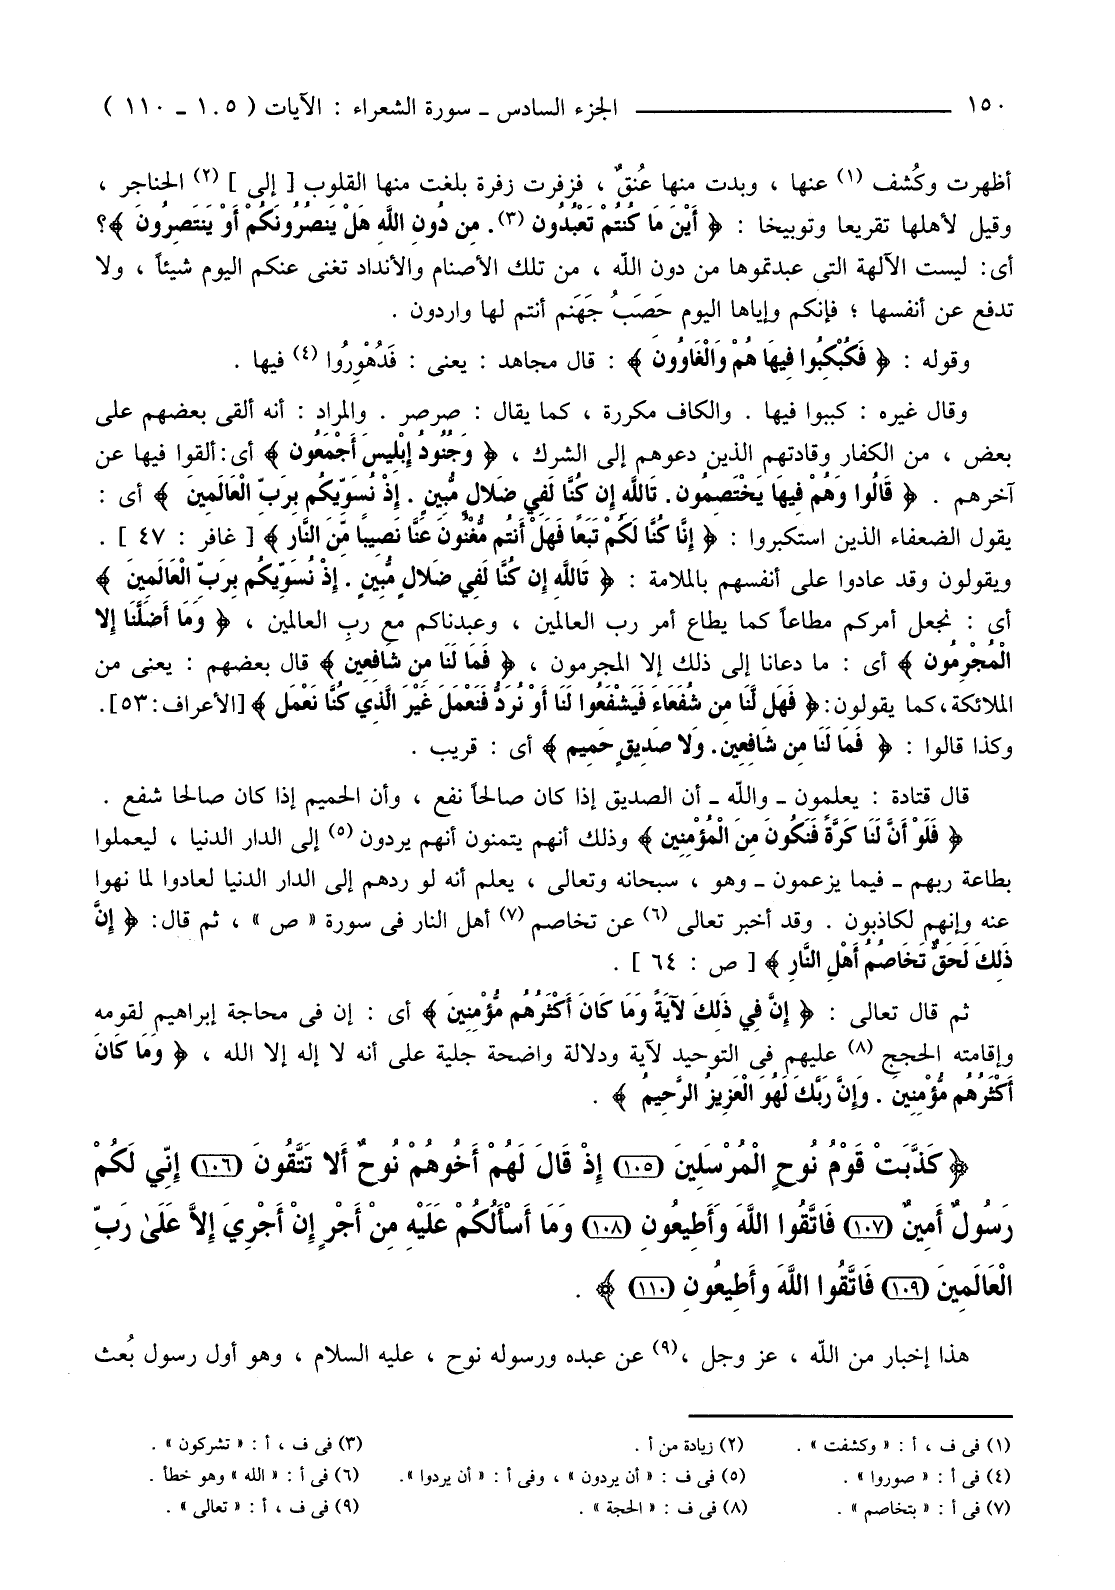 ١٥٠ ــــــــــــــــــــ الجزء السادس ـ سورة الشعراء : الآيات ( ١٠٥ ـ ١١٠ )
أظهرت وكُشف (١) عنها ، وبدت منها عُنقٌ ، فزفرت زفرة بلغت منها القلوب [ إلى ] (٢) الحناجر ،
وقيل لأهلها تقريعا وتوبيخا : ﴿ أَيْنَ مَا كُنتُمْ تَعْبُدُون (٣). مِن دُونِ اللَّهِ هَلْ يَنصُرُونَكُمْ أَوْ يَنتَصِرُونَ ﴾؟
أى: ليست الآلهة التى عبدتموها من دون الله ، من تلك الأصنام والأنداد تغنى عنكم اليوم شيئاً ، ولا
تدفع عن أنفسها ؛ فإنكم وإياها اليوم حَصَبُ جَهَنم أنتم لها واردون .
وقوله : ﴿ فَكُبْكِبُوا فِيهَا هُمْ وَالْغَاوُونَ ﴾ : قال مجاهد : يعنى : فَدُهْوِرُوا (٤) فيها .
وقال غيره : كببوا فيها . والكاف مكررة ، كما يقال : صرصر . والمراد : أنه ألقى بعضهم على
بعض ، من الكفار وقادتهم الذين دعوهم إلى الشرك ، ﴿ وَجُنُودُ إِبْلِيسَ أَجْمَعُون ﴾ أى:ألقوا فيها عن
آخرهم . ﴿ قَالُوا وَهُمْ فِيهَا يَخْتَصِمُون. تَاللَّهِ إِن كُنَّا لَفِي ضَلالٍ مُّبِينٍ . إِذْ نُسَوِّيكُم بِرَبِّ الْعَالَمِينَ ﴾ أى :
يقول الضعفاء الذين استكبروا : ﴿ إِنَّا كُنَّا لَكُمْ تَبَعًا فَهَلْ أَنتُم مُّغْنُونَ عَنَّا نَصِيبًا مِّنَ النَّارِ ﴾ [ غافر : ٤٧ ] .
ويقولون وقد عادوا على أنفسهم بالملامة : ﴿ تَاللَّهِ إِن كُنَّا لَفِي ضَلالٍ مُّبِينٍ . إِذْ نُسَوِّيكُم بِرَبِّ الْعَالَمِينَ ﴾
أى : نجعل أمركم مطاعاً كما يطاع أمر رب العالمين ، وعبدناكم مع ربِ العالمين ، ﴿ وَمَا أَضَلَّنَا إِلا
الْمُجْرِمُون ﴾ أى : ما دعانا إلى ذلك إلا المجرمون ، ﴿ فَمَا لَنَا مِن شَافِعِين ﴾ قال بعضهم : يعنى من
الملائكة،كما يقولون:﴿ فَهَل لَّنَا مِن شُفَعَاءَ فَيَشْفَعُوا لَنَا أَوْ نُرَدُّ فَنَعْمَلَ غَيْرَ الَّذِي كُنَّا نَعْمَل ﴾[الأعراف:٥٣].
وكذا قالوا : ﴿ فَمَا لَنَا مِن شَافِعِين. ولا صَدِيقٍ حَمِيم ﴾ أى : قريب .
قال قتادة : يعلمون ـ والله ـ أن الصديق إذا كان صالحاً نفع ، وأن الحميم إذا كان صالحا شفع .
﴿ فَلَوْ أَنَّ لَنَا كَرَّةً فَنَكُونَ مِنَ الْمُؤْمِنِين ﴾ وذلك أنهم يتمنون أنهم يردون (٥) إلى الدار الدنيا ، ليعملوا
بطاعة ربهم ـ فيما يزعمون ـ وهو ، سبحانه وتعالى ، يعلم أنه لو ردهم إلى الدار الدنيا لعادوا لما نهوا
عنه وإنهم لكاذبون . وقد أخبر تعالى (٦) عن تخاصم (٧) أهل النار فى سورة « ص » ، ثم قال: ﴿ إِنَّ
ذَلِكَ لَحَقٌّ تَخَاصُمُ أَهْلِ النَّارِ ﴾ [ ص : ٦٤ ] .
ثم قال تعالى : ﴿ إِنَّ فِي ذَلِكَ لآيَةً وَمَا كَانَ أَكْثَرُهُم مُّؤْمِنِينَ ﴾ أى : إن فى محاجة إبراهيم لقومه
وإقامته الحجج (٨) عليهم فى التوحيد لآية ودلالة واضحة جلية على أنه لا إله إلا الله ، ﴿ وَمَا كَانَ
أَكْثَرُهُم مُّؤْمِنِينَ . وَإِنَّ رَبَّكَ لَهُوَ الْعَزِيزُ الرَّحِيمُ ﴾ .
﴿ كَذَّبَتْ قَوْمُ نُوحٍ الْمُرْسَلِينَ (١٠٥) إِذْ قَالَ لَهُمْ أَخُوهُمْ نُوحٌ أَلا تَتَّقُونَ (١٠٦) إِنِّي لَكُمْ
رَسُولٌ أَمِينٌ (١٠٧) فَاتَّقُوا اللَّهَ وَأَطِيعُونِ (١٠٨) وَمَا أَسْأَلُكُمْ عَلَيْهِ مِنْ أَجْرٍ إِنْ أَجْرِيَ إِلاَّ عَلَىٰ رَبِّ
الْعَالَمِينَ (١٠٩) فَاتَّقُوا اللَّهَ وَأَطِيعُونِ (١١٠) ﴾ .
هذا إخبار من الله ، عز وجل ،(٩) عن عبده ورسوله نوح ، عليه السلام ، وهو أول رسول بُعث
(١) فى ف ، أ : « وكشفت » . (٢) زيادة من أ . (٣) فى ف ، أ : « تشركون » .
(٤) فى أ : « صوروا » . (٥) فى ف : « أن يردون » ، وفى أ : « أن يردوا ». (٦) فى أ : « الله » وهو خطأ .
(٧) فى أ : « بتخاصم » . (٨) فى ف : « الحجة » . (٩) فى ف ، أ : « تعالى » .